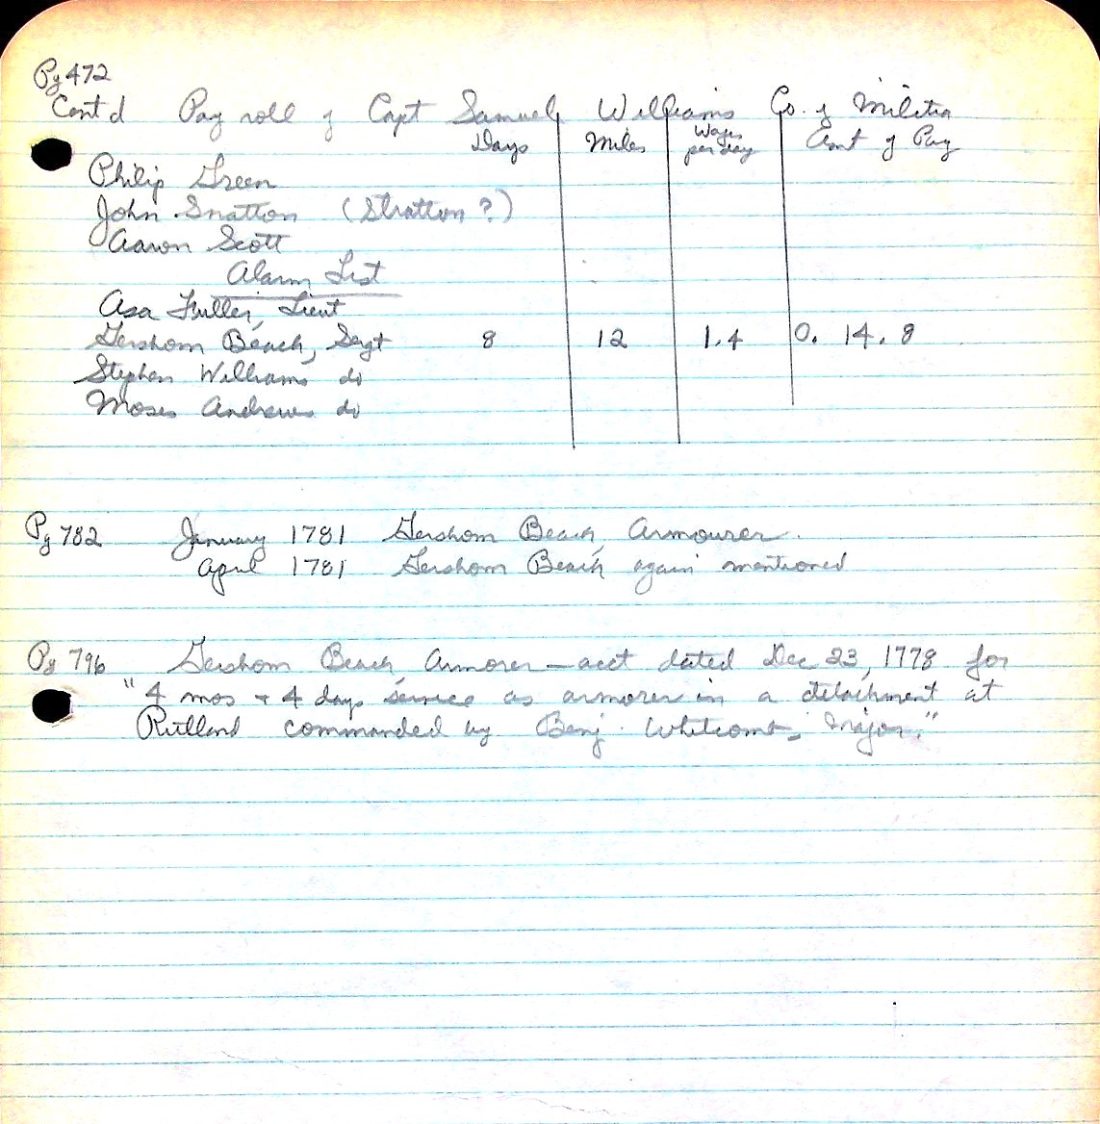 Pg 472
Cont'd Pay roll of Capt Samuel Williams Co. of Militia
Days Miles Wages per day Amt of Pay
Philip Green
John Snatton (Stratton?)
Aaron Scott
Alarm List
Asa Fuller, Lieut
Gershom Beach, Sergt 8 12 1.4 0. 14. 8
Stephen Williams do
Moses Andrews do
Pg 782 January 1781 Gershom Beach, Armourer.
April 1781 Gershom Beach again mentioned
Pg 796 Gershom Beach, Armorer — acct dated Dec 23, 1778 for
"4 mos + 4 days service as armorer in a detachment at
Rutland commanded by Benj. Whitcomb, Major."